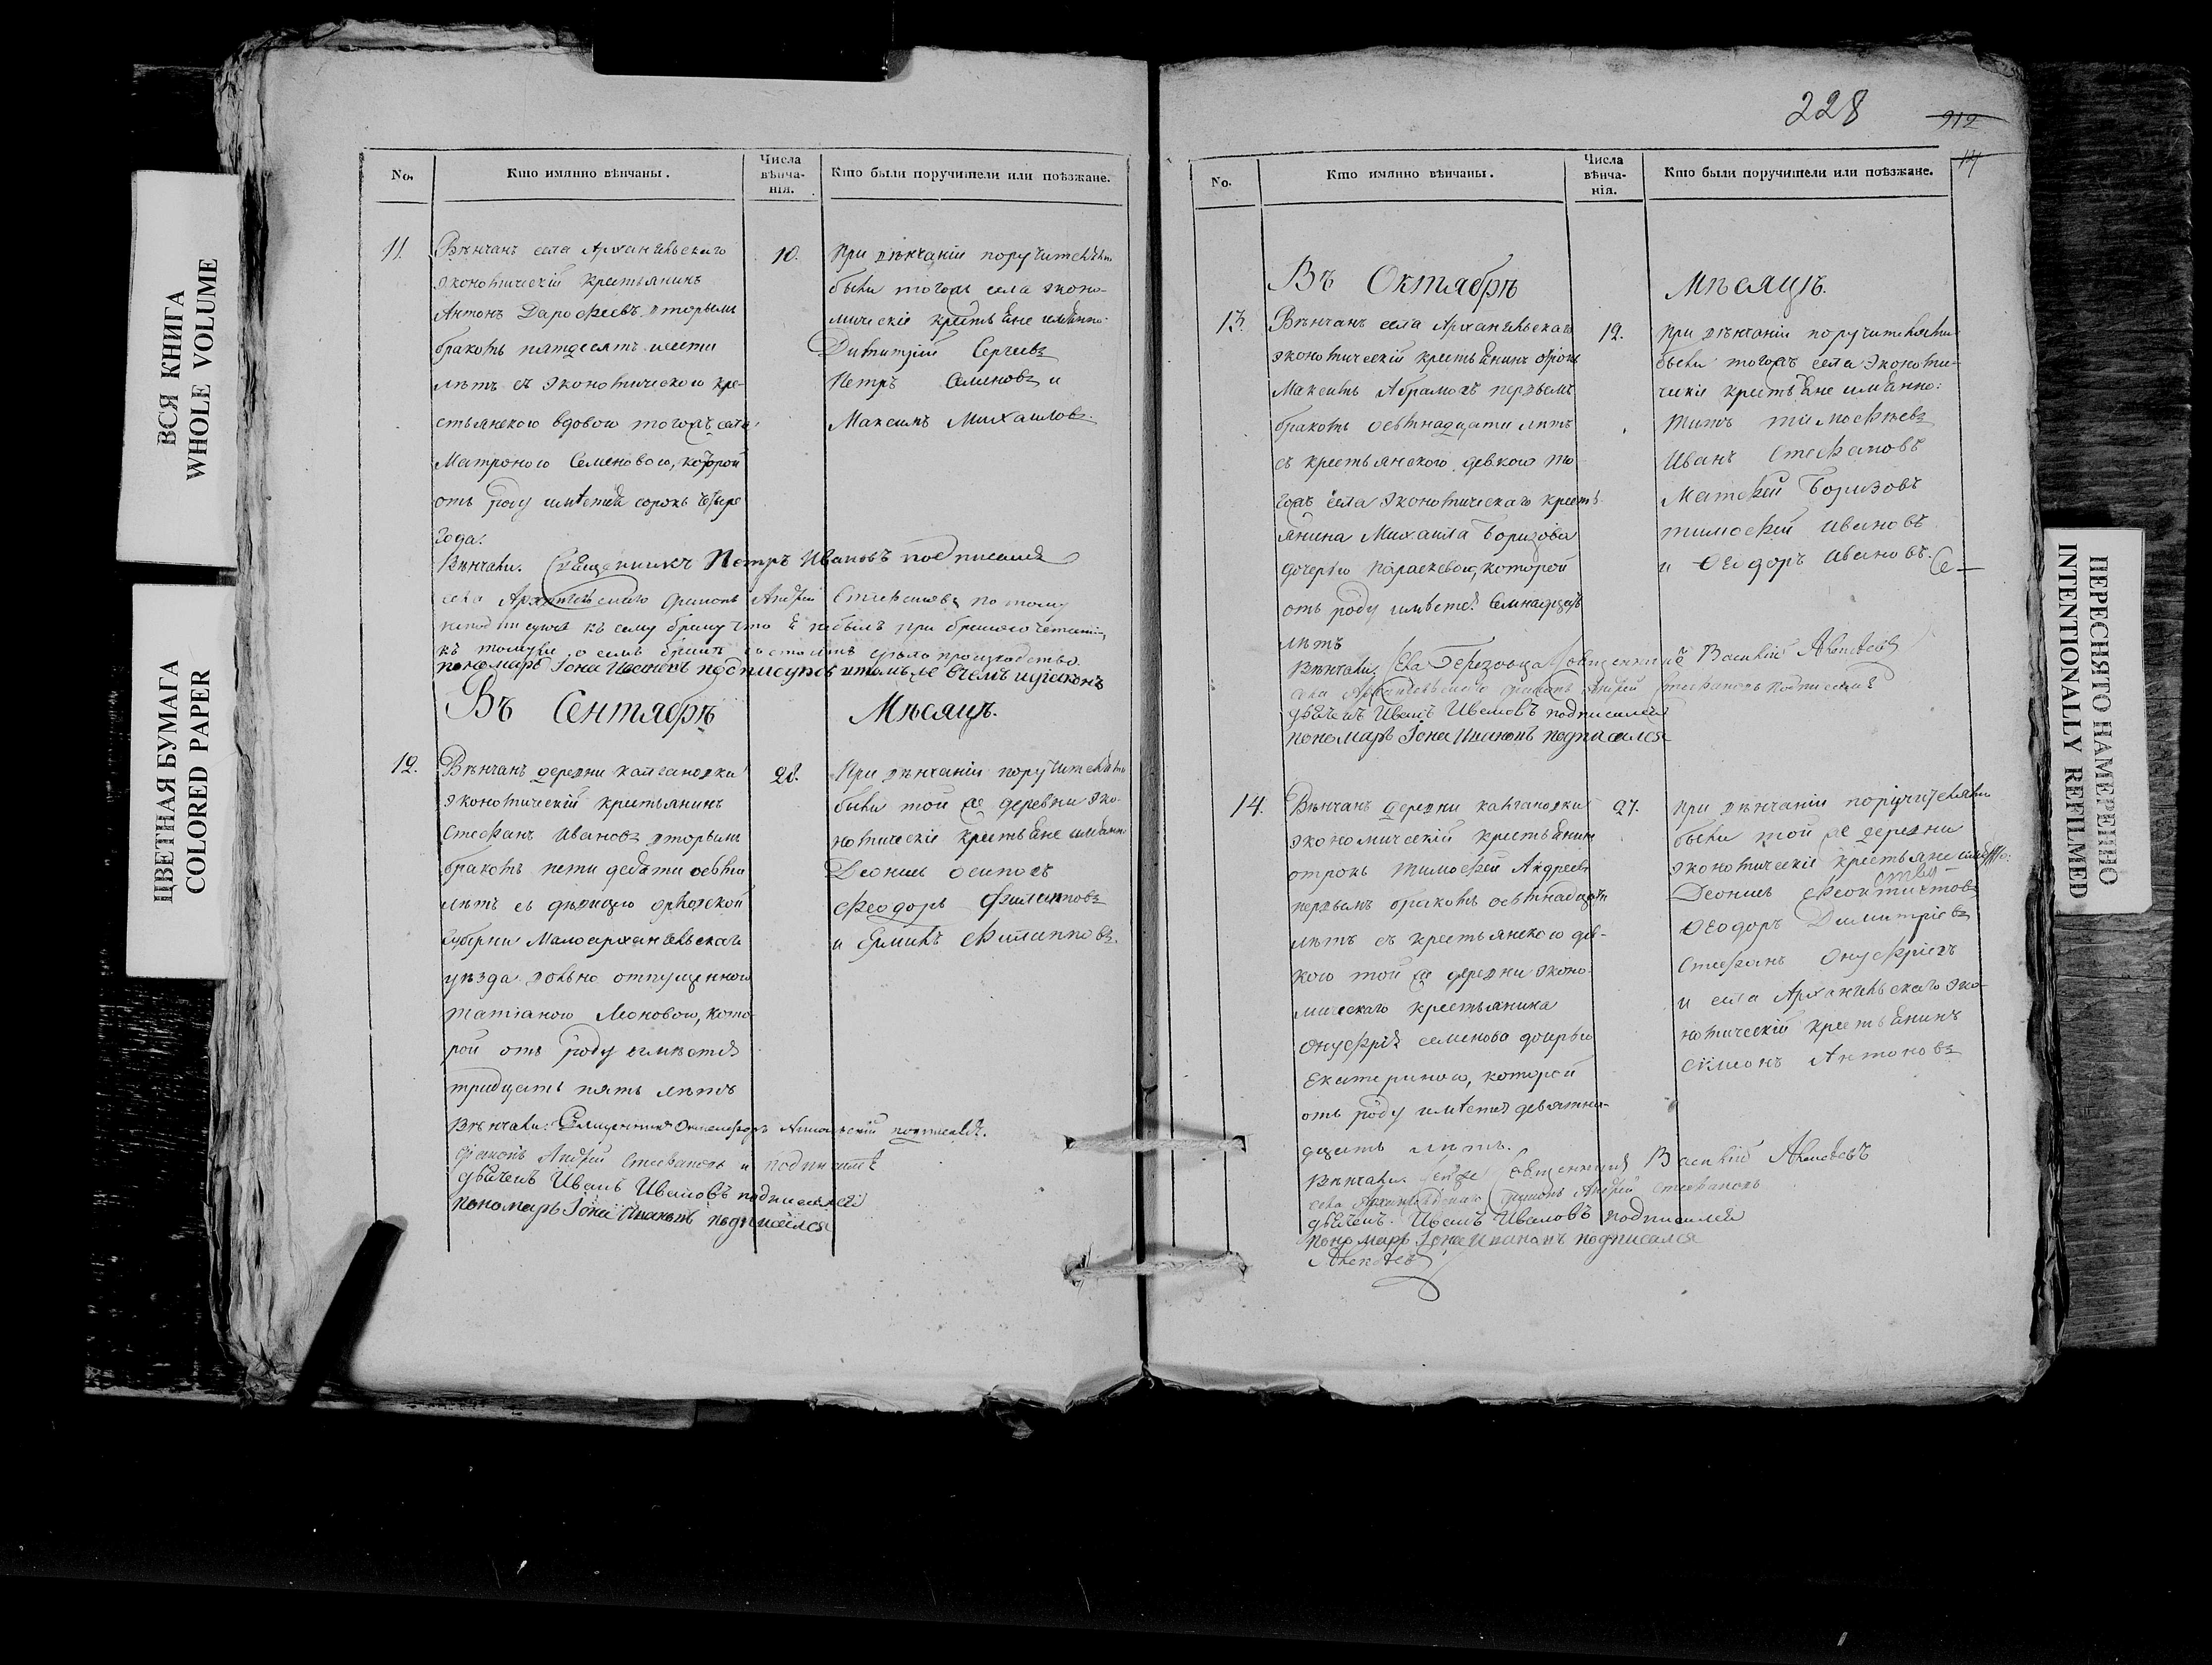 ВСЯ КНИГА
WHOLE VOLUME
ЦВЕТНАЯ БУМАГА
COLORED PAPER
No.
Кто имянно вѣнчаны.
Числа
вѣнча-
нія.
Кто были поручители или поѣзжане.
11.
Вѣнчанъ села Архангельскаго
экономическій крестьянинъ
Антонъ Дарофеевъ вторымъ
бракомъ пятдесятъ шести
лѣтъ съ экономическою кре-
стьянскою вдовою тогожъ села
Матроною Семеновою, которой
отъ роду имѣется сорокъ четыре
года.
10.
При вѣнчаніи поручительми
были тогожъ села эконо-
мическіе крестьяне имянно:
Димитрій Сергеевъ
Петръ Семеновъ и
Максимъ Михаиловъ
Вѣнчали: Священникъ Петръ Ивановъ подписался
села Архангельскаго диаконъ Андрей Стефановъ по тому
къ сему браку что я небылъ при
пономарь Іона Ивановъ
Въ Сентябрѣ Мѣсяцѣ.
12.
Вѣнчанъ деревни
экономическій крестьянинъ
Стефанъ Ивановъ вторымъ
бракомъ пети десяти осьми
лѣтъ съ дѣвицею орловской
губерни Малоархангельскаго
уѣзда вольно отпущенною
Татіаною Леоновою, кото-
рой отъ роду имѣется
тридцать пять лѣтъ
28.
При вѣнчаніи поручительми
были той же деревни эко-
номическіе крестьяне имянно
Деонисъ Осиповъ
Феодоръ Филиповъ
и Ермилъ Филипповъ.
Вѣнчали: Священникъ подписался.
диаконъ Андрей Стефановъ и подписался
дьячекъ Иванъ Ивановъ подписался
пономарь Іона Ивановъ подписался
228
912
14
No.
Кто имянно вѣнчаны.
Числа
вѣнча-
нія.
Кто были поручители или поѣзжане.
Въ Октябрѣ Мѣсяцѣ.
13.
Вѣнчанъ села Архангельскаго
экономическій крестьянинъ отрокъ
Максимъ Абрамовъ первымъ
бракомъ осьмнадцати лѣтъ
съ крестьянскою девкою то
гожъ села экономическаго кресть
янина Михаила Боризова
дочерью Параскевою, которой
отъ роду имѣется семнадцать
лѣтъ
12.
При вѣнчаніи поручительми
были тогожъ села экономи-
ческіе крестьяне имянно:
Титъ Тимофѣевъ
Иванъ Стефановъ
Матфей Боризовъ
Тимофей Ивановъ
и Феодоръ Ивановъ.
Вѣнчали: села священникъ Василій
села Архангельскаго диаконъ Андрей Стефановъ подписался
дьячекъ Иванъ Ивановъ подписался
пономарь Іона Ивановъ подписался
14.
Вѣнчанъ деревни
экономическій крестьянинъ
отрокъ Тимофей Андреевъ
первымъ бракомъ осьмнадцати
лѣтъ съ крестьянскою дев-
кою той же деревни эконо-
мическаго крестьянина
Онуфрія Семенова дочерью
Екатериною, которой
отъ роду имѣется девятна-
дцать лѣтъ.
27.
При вѣнчаніи поручительми
были той же деревни
экономическіе крестьяне имянно:
Деонисъ Феоктистовъ
Феодоръ Димитріевъ
Стефанъ Онуфріевъ
и села Архангельскаго эко-
номическій крестьянинъ
Симонъ Антоновъ
Вѣнчали: священникъ Василій
села Архангельскаго диаконъ Андрей Стефановъ
дьячекъ Иванъ Ивановъ подписался
пономарь Іона Ивановъ подписался
ПЕРЕСНЯТО НАМЕРЕННО
INTENTIONALLY REFILMED